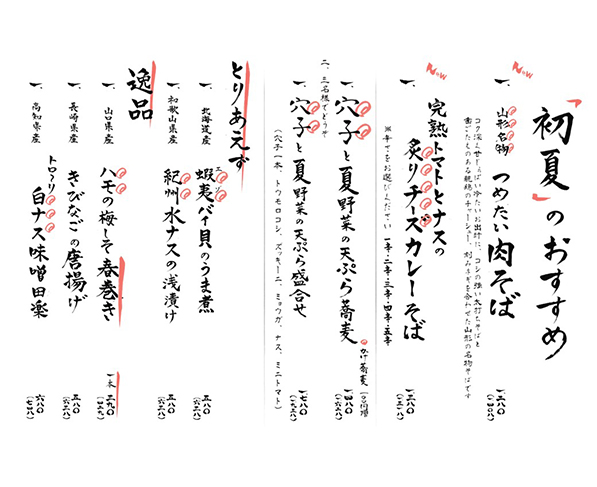 「初夏」のおすすめ
New
一、山形名物 つめたい肉そば 一二八〇(一四〇八)
コク深く甘じょっぱい冷たいお出汁に、コシの強い太打ちそばと
歯ごたえのある親鶏のチャーシュー、刻みネギを合わせた山形の名物そばです
New
一、完熟トマトとナスの
炙りチーズカレーそば 一三八〇(一五一八)
※辛さをお選びください 一辛・二辛・三辛・四辛・五辛
一、穴子と夏野菜の天ぷら蕎麦 一四八〇(一六二八)
かけ蕎麦
二、三名様でどうぞ
一、穴子と夏野菜の天ぷら盛合せ 一七八〇(一九五八)
(穴子一本、トウモロコシ、ズッキーニ、ミョウガ、ナス、ミニトマト)
とりあえず
一、北海道産 蝦夷バイ貝のうま煮 五八〇(六三八)
エゾ
一、和歌山県産 紀州水ナスの浅漬け 五八〇(六三八)
逸品
一、山口県産 ハモの梅しそ春巻き 一本 三九〇(四二九)
一、長崎県産 きびなごの唐揚げ 五八〇(六三八)
一、高知県産 トロ〜リ白ナス味噌田楽 六八〇(七四八)